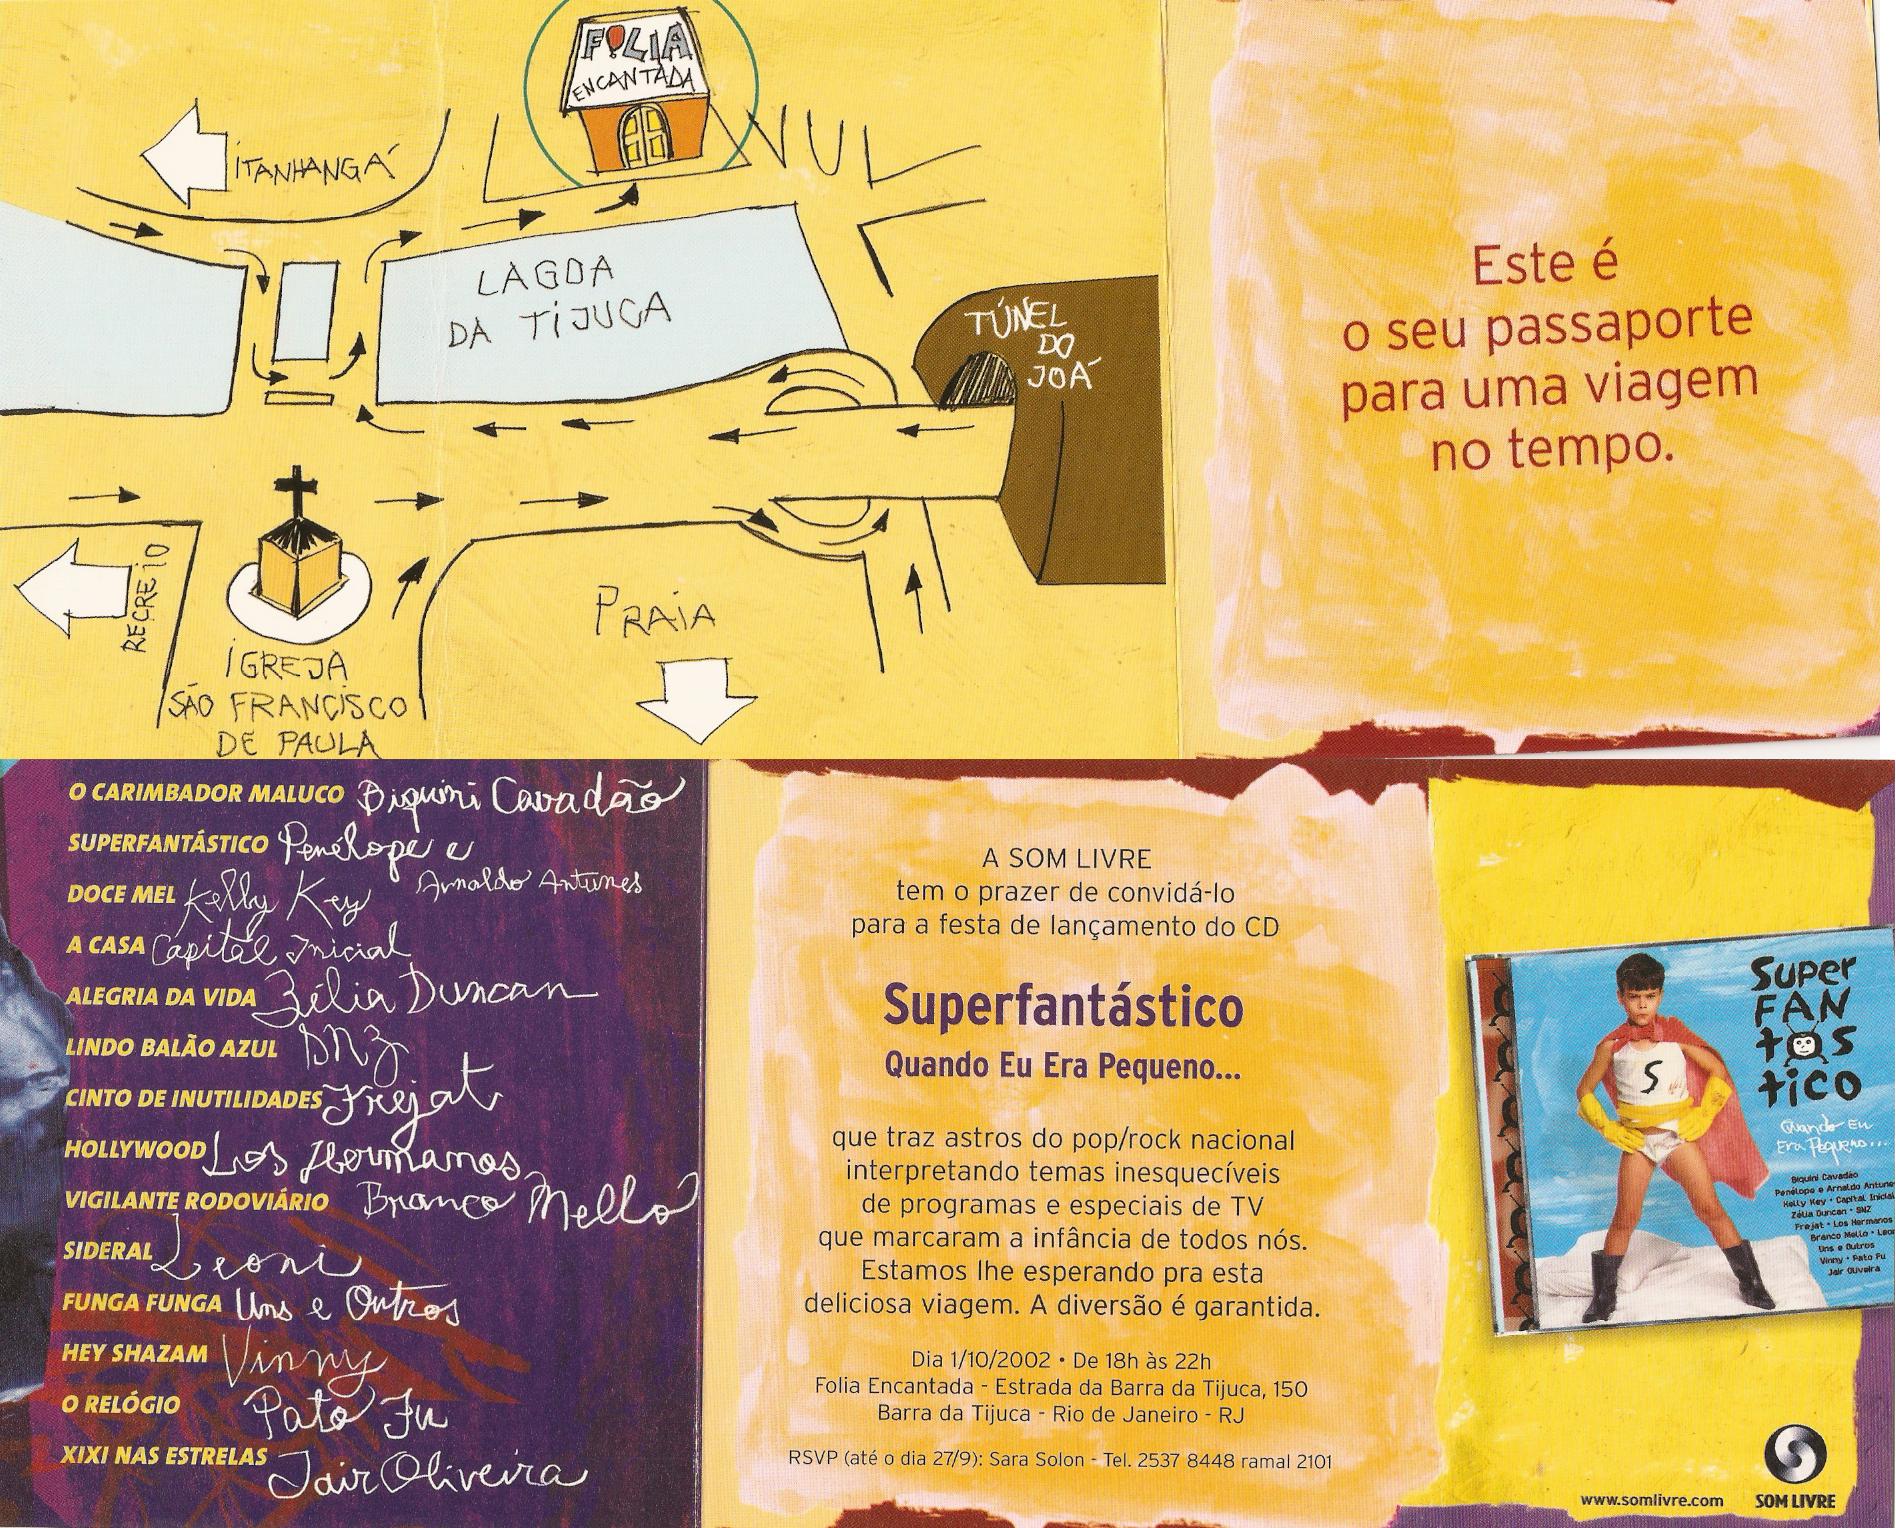 FOLIA
ENCANTADA
ITANHANGÁ
LAGOA
DA TIJUCA
TÚNEL
DO
JOÁ
RECREIO
IGREJA
SÃO FRANCISCO
DE PAULA
PRAIA
Este é
o seu passaporte
para uma viagem
no tempo.
O CARIMBADOR MALUCO Biquini Cavadão
SUPERFANTÁSTICO Penélope e
Arnaldo Antunes
DOCE MEL Kelly Key
A CASA Capital Inicial
ALEGRIA DA VIDA Zélia Duncan
LINDO BALÃO AZUL SNZ
CINTO DE INUTILIDADES Frejat
HOLLYWOOD Los Hermanos
VIGILANTE RODOVIÁRIO Branco Mello
SIDERAL Leoni
FUNGA FUNGA Uns e Outros
HEY SHAZAM Vinny
O RELÓGIO Pato Fu
XIXI NAS ESTRELAS Jair Oliveira
A SOM LIVRE
tem o prazer de convidá-lo
para a festa de lançamento do CD
Superfantástico
Quando Eu Era Pequeno...
que traz astros do pop/rock nacional
interpretando temas inesquecíveis
de programas e especiais de TV
que marcaram a infância de todos nós.
Estamos lhe esperando pra esta
deliciosa viagem. A diversão é garantida.
Dia 1/10/2002 • De 18h às 22h
Folia Encantada - Estrada da Barra da Tijuca, 150
Barra da Tijuca - Rio de Janeiro - RJ
RSVP (até o dia 27/9): Sara Solon - Tel. 2537 8448 ramal 2101
SUPER
FAN
tOS
tiCO
S
Quando Eu
Era Pequeno...
Biquini Cavadão
Penélope e Arnaldo Antune
Kelly Key • Capital Inicial
Zélia Duncan • SNZ
Frejat • Los Hermanos
Branco Mello • Leo
Uns e Outros
Vinny • Pato Fu
Jair Oliveira
www.somlivre.com
SOM LIVRE